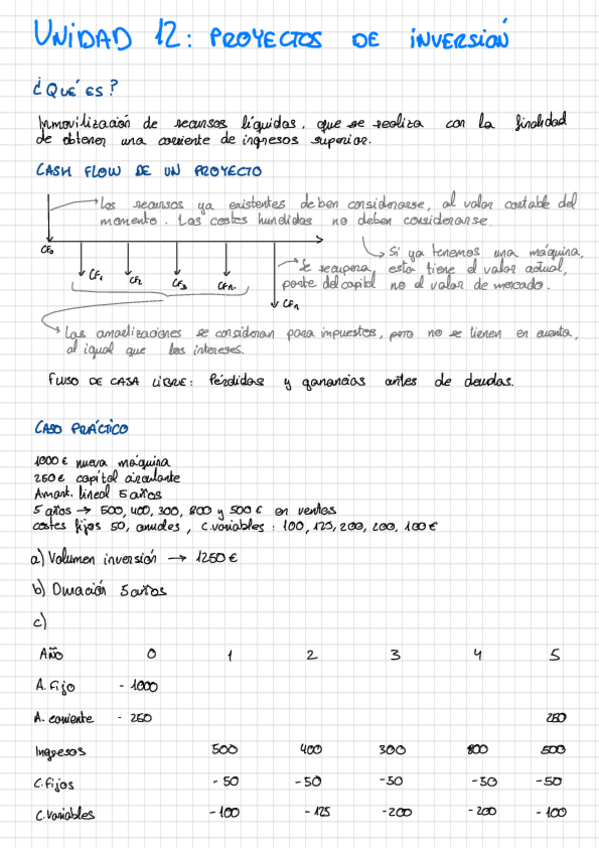 UNIDAD 12: PROYECTOS DE INVERSIÓN
¿QUÉ ES?
Inmovilización de recursos líquidos, que se realiza con la finalidad
de obtener una corriente de ingresos superior.
CASH FLOW DE UN PROYECTO
Los recursos ya existentes deben considerarse, al valor contable del
momento. Los costes hundidos no deben considerarse.
CF₀
CF₁
CF₂
CF₃
CFn.
CFn
Se recupera
parte del capital
Si ya tenemos una máquina,
esta tiene el valor actual,
no el valor de mercado.
Las amortizaciones se consideran para impuestos, pero no se tienen en cuenta,
al igual que los intereses.
FLUJO DE CASA LIBRE: Pérdidas y ganancias antes de deudas.
CASO PRÁCTICO
1000 € nueva máquina
250 € capital circulante
Amort. lineal 5 años
5 años → 500, 400, 300, 800 y 500 € en ventas
costes fijos 50, anuales, C. variables: 100, 125, 200, 200, 100 €
a) Volumen inversión → 1250 €
b) Duración 5 años
c)
AÑO 0 1 2 3 4 5
A. Fijo - 1000
A. corriente - 250 250
Ingresos 500 400 300 800 500
C. Fijos - 50 - 50 - 50 - 50 - 50
C. Variables - 100 - 125 - 200 - 200 - 100